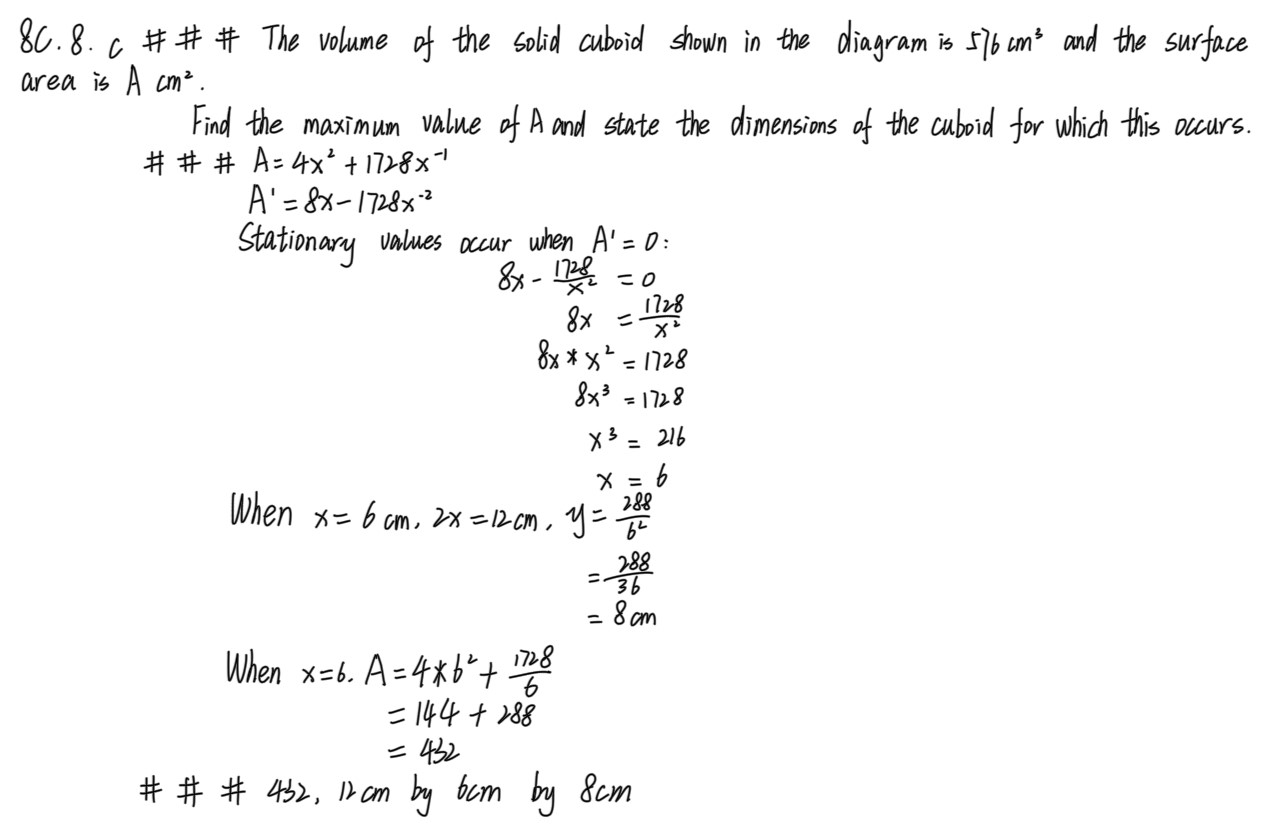 8C.8.c # # # The volume of the solid cuboid shown in the diagram is 576 cm³ and the surface
area is A cm².
Find the maximum value of A and state the dimensions of the cuboid for which this occurs.
# # # A = 4x² + 1728x⁻¹
A' = 8x - 1728x⁻²
Stationary values occur when A' = 0:
8x - 1728/x² = 0
8x = 1728/x²
8x * x² = 1728
8x³ = 1728
x³ = 216
x = 6
When x = 6 cm, 2x = 12 cm, y = 288/6²
= 288/36
= 8 cm
When x = 6. A = 4 * 6² + 1728/6
= 144 + 288
= 432
# # # 432, 12 cm by 6cm by 8cm